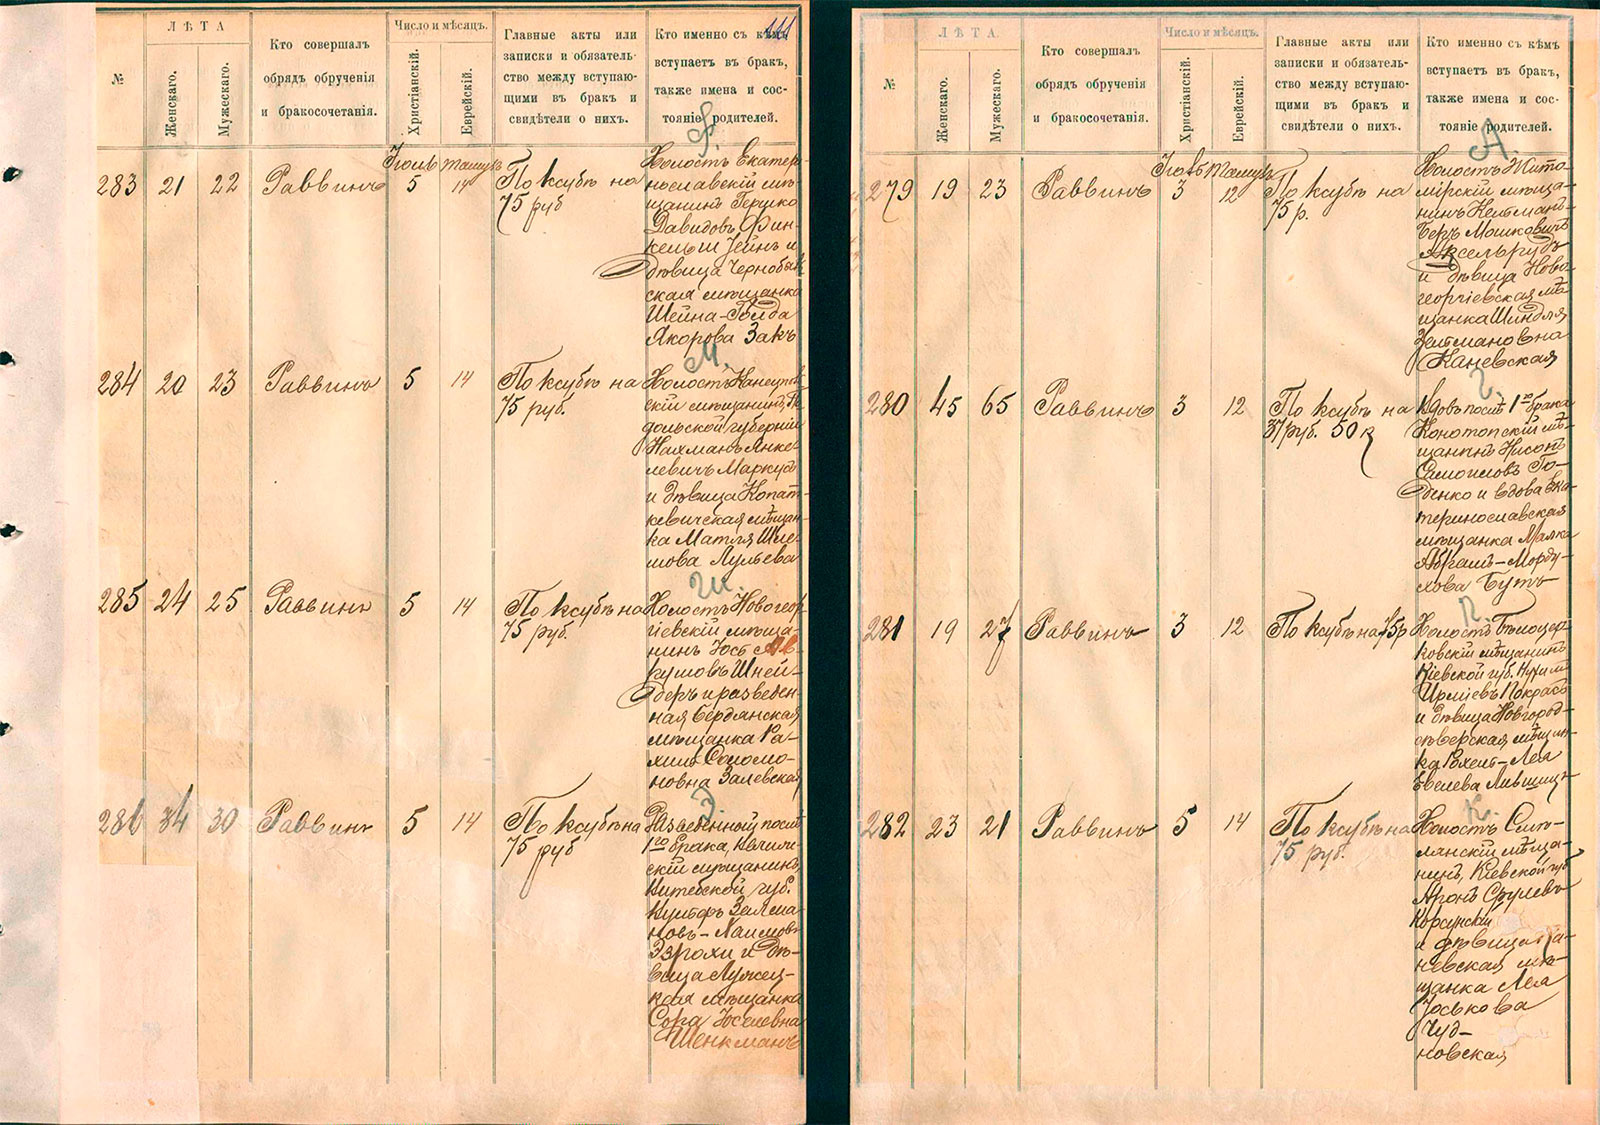 ЛѢТА
Число и мѣсяцъ.
111
№
Женскаго.
Мужескаго.
Кто совершалъ
обрядъ обрученія
и бракосочетанія.
Христіанскій.
Еврейскій.
Главные акты или
записки и обязатель-
ство между вступаю-
щими въ бракъ и
свидѣтели о нихъ.
Кто именно съ кѣмъ
вступаетъ въ бракъ,
также имена и сос-
тояніе родителей.
Ф.
283 21 22 Раввинъ
Іюль 5
Тамузъ 14
По ксубѣ на
75 руб
Холостъ Екатери-
нославскій мѣ-
щанинъ Гершко
Давидовъ Фин-
кельштейнъ и
дѣвица Чернобыль-
ская мѣщанка
Шейна-Гольда
Закъ
М.
284 20 23 Раввинъ 5 14
По ксубѣ на
75 руб.
Холостъ
скій мѣщанинъ, По-
дольской губерніи
Нахманъ Янке-
левичъ Маркусъ
и дѣвица Копат-
кевичская мѣщан-
ка Матля
мова
Ш
285 24 25 Раввинъ 5 14
По ксубѣ на
75 руб.
Холостъ Новогеор-
гіевскій мѣща-
нинъ Іось Ав-
румовъ Шней-
деръ и разведен-
ная Бердянская
мѣщанка Ра-
хиль Соломо-
новна Залевская
Э
286 34 30 Раввинъ 5 14
По ксубѣ на
75 руб
Разведенный послѣ
1го брака,
скій мѣщанинъ,
Витебской губ.
Залма-
новъ-Хаимовъ
Эзрохи и дѣ-
вица
кая мѣщанка
Сора Іоселевна
Шенкманъ
ЛѢТА.
Число и мѣсяцъ.
№
Женскаго.
Мужескаго.
Кто совершалъ
обрядъ обрученія
и бракосочетанія.
Христіанскій.
Еврейскій.
Главные акты или
записки и обязатель-
ство между вступаю-
щими въ бракъ и
свидѣтели о нихъ.
Кто именно съ кѣмъ
вступаетъ въ бракъ,
также имена и сос-
тояніе родителей.
А.
279 19 23 Раввинъ
Іюль 3
Тамузъ 12
По ксубѣ на
75 р.
Холостъ Жито-
мірскій мѣща-
нинъ Зельманъ-
Беръ Мошковичъ
Аксельрудъ
и дѣвица Ново-
георгіевская мѣ-
щанка Шиндля
Зельмановна
Каневская
Г.
280 45 65 Раввинъ 3 12
По ксубѣ на
37 руб. 50 к
Вдовъ послѣ 1го брака
Конотопскій мѣ-
щанинъ Нисонъ
Самойловъ Го-
денко и вдова Ека-
теринославская
мѣщанка Малка
Абрамъ-Морду-
хова Бутъ
П
281 19 27 Раввинъ 3 12
По ксубѣ на 75 р
Холостъ Бѣлоцер-
ковскій мѣщанинъ
Кіевской губ. Нухимъ
Покрасъ
и дѣвица Новгород-
сѣверская мѣщан-
ка Рохель-Лея
Евелева Лившицъ
К.
282 23 21 Раввинъ 5 14
По ксубѣ на
75 руб.
Холостъ Смѣ-
лянскій мѣща-
нинъ, Кіевской губ
Аронъ Срулевъ
Корсунскій
и дѣвица Ка-
невская мѣ-
щанка Лея
Іоськова
Чуд-
новская